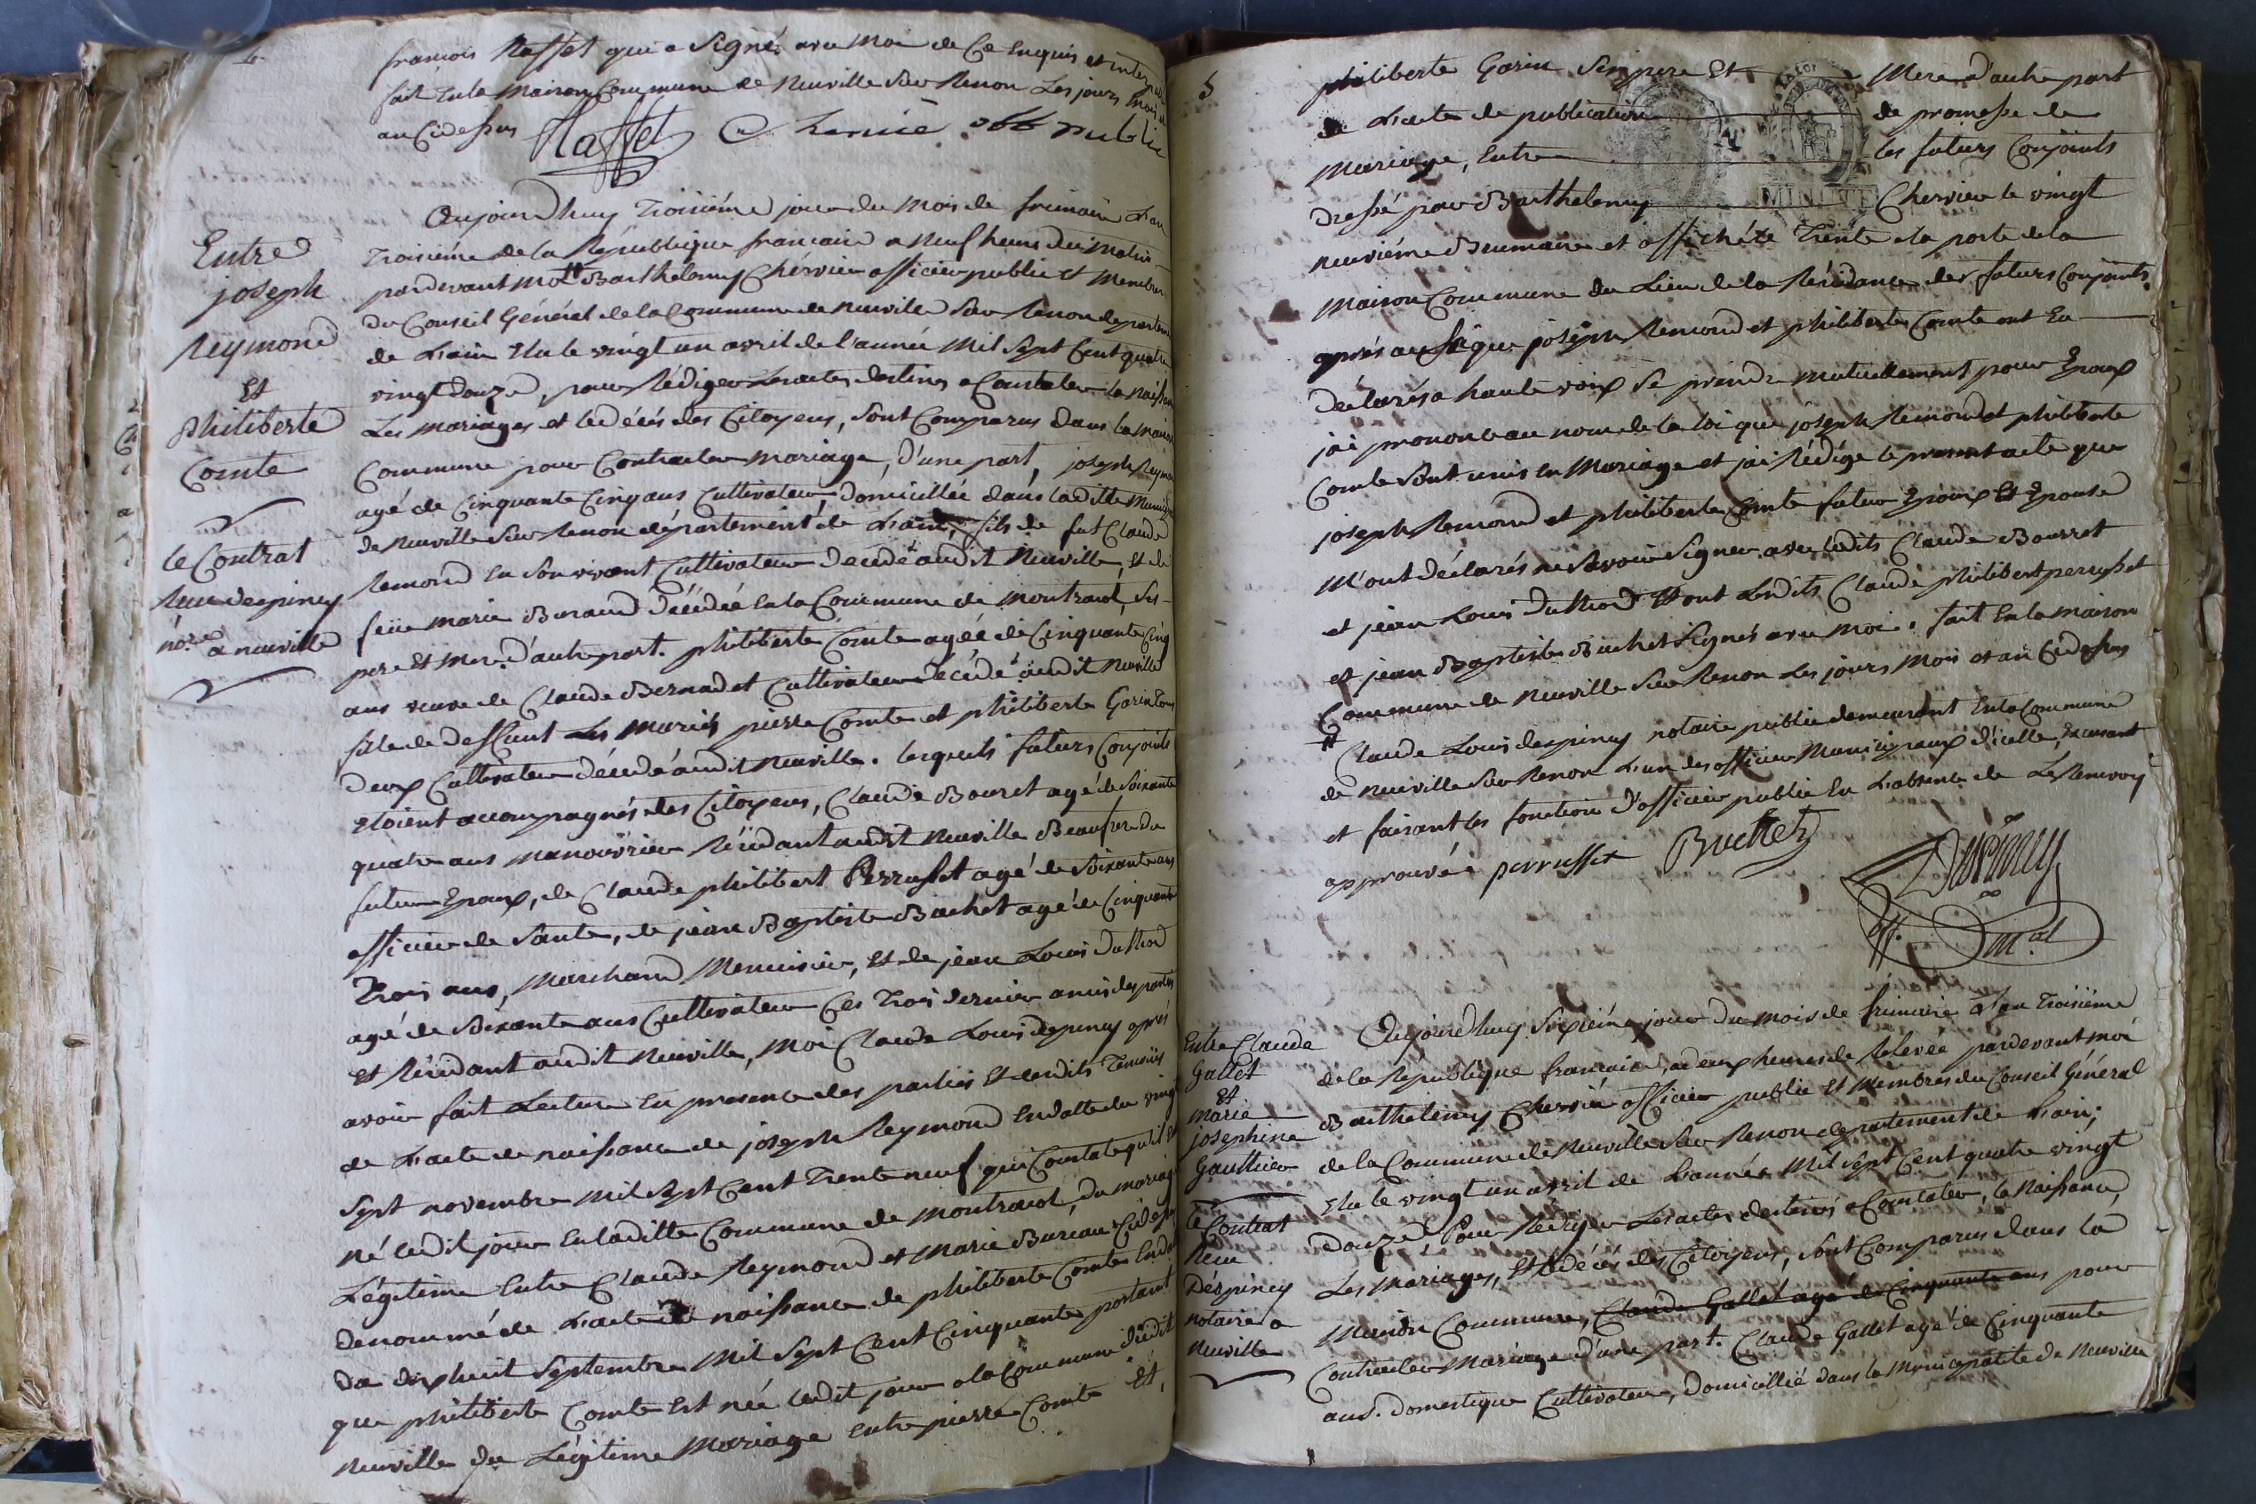 4.
francois Raffet qui a Signé avec Moi de Ce Enquis et
fait En la Maison Commune de Neuville Sur Renon Les jours Mois
an Cidessus Raffet Chervié off public
Entre
joseph
Reymond
Et
philiberte
Comte
le Contrat
Reçu despiney
nore a neuville
Aujourdhuy Troisiéme jour du Mois de frimaire L'an
Troisiéme de la République francaise a Neuf heures du Matin
pardevant Moi # Barthélemy Chérvier officier public Et Membre
du Conseil Général de la Commune de Neuville Sur Renon departem
de L'ain Elu le vingt un avril de l'année Mil Sept Cent quatre
vingt douze, pour Rédiger Les actes destinés a Constater la Naissan
Les Mariages et le décés des Citoyens, Sont Comparus dans la maison
Commune pour Contracter Mariage, D'une part, joseph Reymond
agé de Cinquante Cinq ans Cultivateur Domicillié dans la ditte
de Neuville Sur Renon département de L'ain, fils de fut Claude
Remond En Son vivant Cultivateur Decédé audit Neuville, Et de
feüe Marie Buraud Décédée En la Commune de Montracol, Ses
pere Et Mere. D'autre part. philiberte Comte agéé de Cinquante Cinq
ans veuve de Claude Bernadet Cultivateur Decédé audit Neuville
fille de Deffunt Les Mariés pierre Comte et philiberte Garin Tous
deux Cultivateur décédé audit Neuville. lesquels futurs Conjoints
Etoient accompagnés des Citoyens, Claude Bouret agé de Soixante
quatre ans Manoüvrier Résidant audit Neuville Beaufrere du
futur Epoux, de Claude philibert Perrusset agé de Soixante ans
officier de Santé, de jean Baptiste Buchet agé de Cinquante
Trois ans, Marchand Menuisier, Et de jean Louis
agé de Soixante ans Cultivateur Ces Trois dernier amis des parties
Et Résidant audit Neuville, Moi Claude Louis despiney aprés
avoir fait Lecture En presence des parties Et desdits Temoins
de L'acte de naissance de joseph Reymond En datte du vingt
Sept novembre Mil Sept Cent Trente neuf qui Constate qu'il Est
Né ledit jour En laditte Commune de Montracol, du mariage
Légitime Entre Claude Reymond et Marie Bureau Cidessus
denommé de L'acte de naissance de philiberte Comte En da
du dixhuit Septembre Mil Sept Cent Cinquante portant
que philiberte Comte Est née ledit jour a la Commune dudit
Neuville du Légitime Mariage Entre pierre Comte Et,
5
philiberte Garin Ses pere Et Mere D'autre part
de L'acte de publication de promesse de
Mariage, Entre les futurs Conjoints
dressé par Barthelemy Chervier le vingt
neuviéme Brumaire et affiché le Trente a la porte de la
Maison Commune du Lieu de la Résidance des futurs Conjoints.
MINUTE
aprés aussi que joseph Remond et philiberte Comte ont Eu
déclarés a haute voix Se prendre Mutuellement pour Epoux
jai prononcé au nom de la loi que joseph Remond et philiberte
Comte Sont unis En Mariage et jai Rédigé le present acte que
joseph Remond et philiberte Comte futur Epoux Et Epouse
M'ont déclarés ne Savoir Signer avec ledits Claude Bourret
et jean Louis Et ont Lesdits Claude philibert perrusset
et jean Baptiste Buchet Signés avec Moi. fait En la Maison
Commune de Neuville Sur Renon Les jours Mois et an Cidessus
# Claude Louis despiney notaire public demeurant En la Commune
de Neuville Sur Renon L'un des officier Municipaux d'icelle, Exercant
et faisant les fonction D'officier public En L'absence de Le Renvoy
approuvé perrusset Buchet Despiney
off. mal
Entre Claude
Gallet
Et
Marie
josephine
Gauthier
le Contrat
Reçu
Déspiney
notaire a
Neuville
Aujourdhuy Sixiéme jour du mois de frimaire L'an Troisiéme
de la Republique francaise, a deux heures de Relevée pardevant moi
Barthelemy Chervié officier public Et Membres du Conseil Général
de la Commune de Neuville Sur Renon département de L'ain;
Elu le vingt un avril de L'année Mil Sept Cent quatre vingt
douze Pour Rediger Les actes destinés a Constater, la Naissance,
Les Mariages, Et le décés des Citoyens, Sont Comparus dans la
Maison Commune, Claude Gallet agé de Cinquante ans pour
Contracter Mariage d'une part. Claude Gallet agé de Cinquante
ans. Domestique Cultivateur, Domicillié dans la Municipalité de Neuville